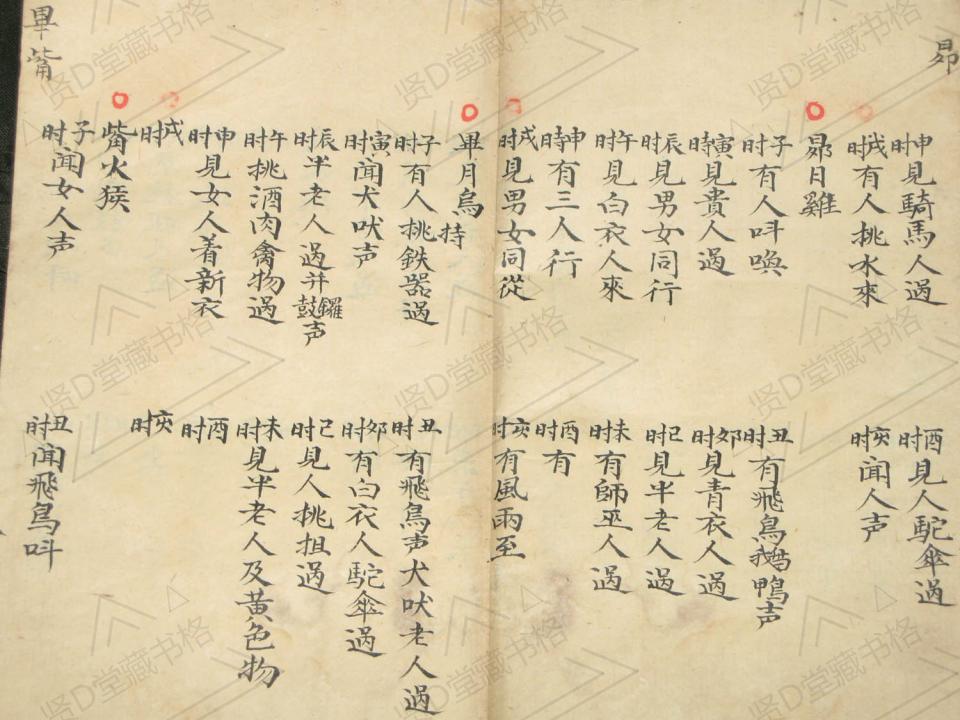 昴
申时見騎馬人過
酉时見人駝傘過
戌时有人挑水來
亥时聞人声
昴日雞
子时有人呌喚
丑时有飛鳥鵝鴨声
寅時見貴人過
卯时見青衣人過
辰时見男女同行
巳时見半老人過
午时見白衣人來
未时有師巫人過
申時有三人行
酉时有
戌时見男女同從
亥时有風雨至
畢月烏
子时有人挑持鉄器過
丑时有飛鳥声犬吠老人過
寅时聞犬吠声
卯时有白衣人駝傘過
辰时半老人過并鑼鼓声
巳时見人挑担過
午时挑酒肉禽物過
未时見半老人及黃色物
申时見女人着新衣
酉时
戌时
亥时
觜火猴
子时聞女人声
丑时聞飛鳥呌
畢觜
贤D堂藏书格